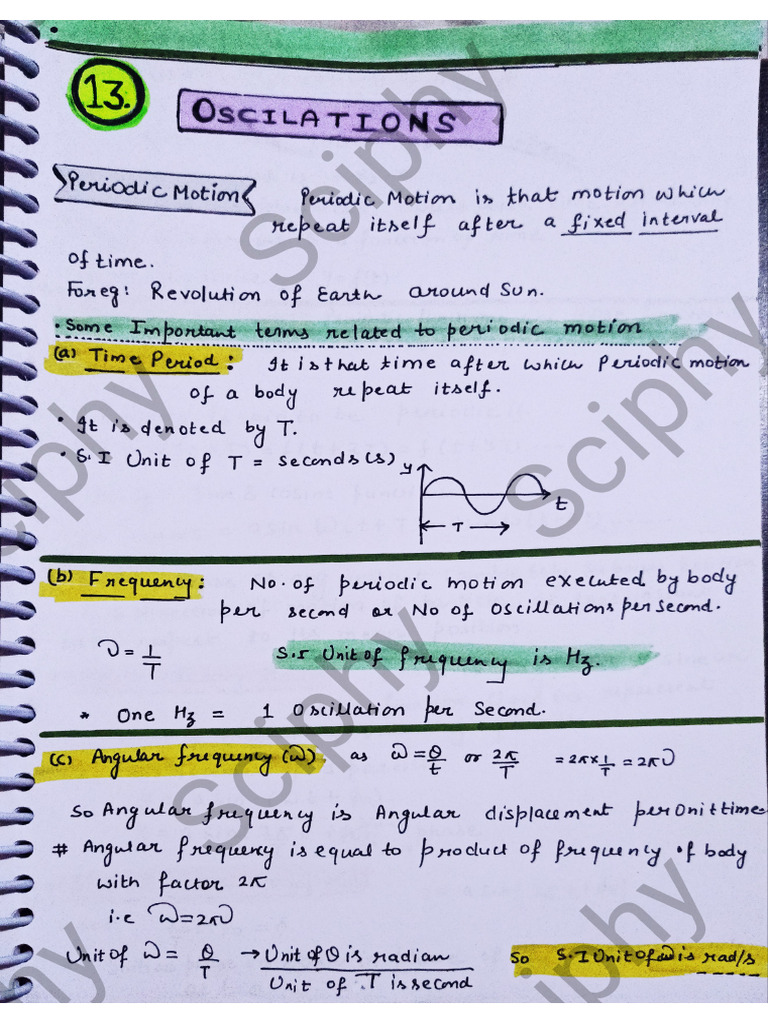 13.
OSCILATIONS
Periodic Motion
Periodic Motion is that motion which
repeat itself after a fixed interval
of time.
For eg: Revolution of Earth around Sun.
• Some Important terms related to periodic motion
(a) Time Period: It is that time after which Periodic motion
of a body repeat itself.
• It is denoted by T.
• S.I Unit of T = seconds (s)
y
t
T
(b) Frequency: No. of periodic motion executed by body
per second or No of Oscillations per second.
ν = 1/T
S.I Unit of frequency is Hz.
* One Hz = 1 Oscillation per Second.
(c) Angular frequency (ω), as ω = θ/t or 2π/T = 2π×1/T = 2πν
So Angular frequency is Angular displacement per Unit time
# Angular frequency is equal to product of frequency of body
with factor 2π
i.e ω = 2πν
Unit of ω = θ/T → Unit of θ is radian / Unit of T is second
So S.I Unit of ω is rad/s
Sciphy
Sciphy
Sciphy
Sciphy
Sciphy